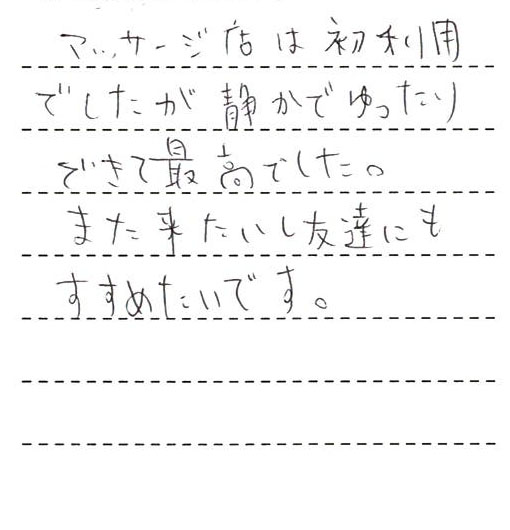 マッサージ店は初利用
でしたが静かでゆったり
できて最高でした。
また来たいし友達にも
すすめたいです。